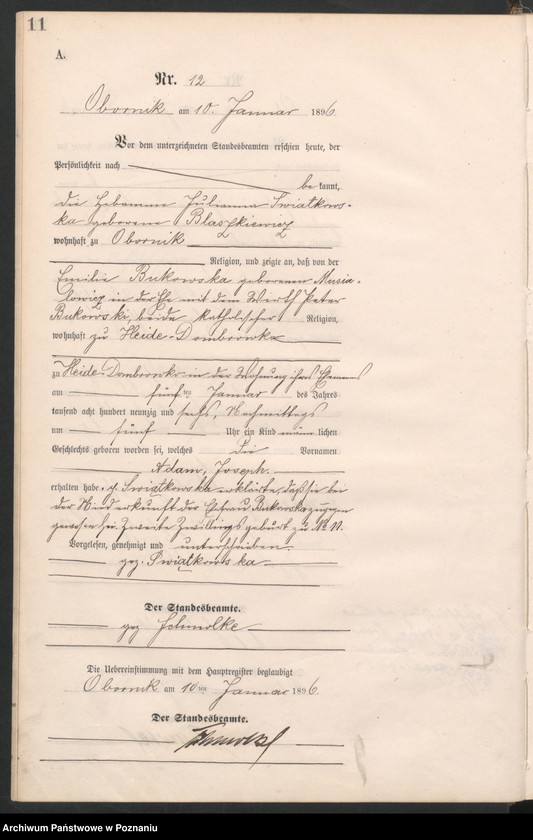 11
A.
Nr. 12
Obornik am 10. Januar 1896
Vor dem unterzeichneten Standesbeamten erschien heute, der
Persönlichkeit nach
be kannt,
die Hebamme Julianna Swiatkows-
ka geborene Blaszkiewicz
wohnhaft zu Obornik
Religion, und zeigte an, daß von der
Emilie Bukowska geborenen Musia-
lowicz in der Ehe mit dem Wirth Peter
Bukowski, beide katholischer Religion,
wohnhaft zu Heide-Dombrowka
zu Heide-Dombrowka in der Wohnung ihres Ehemannes
am fünften Januar des Jahres
tausend acht hundert neunzig und sechs, Nachmittags
um fünf Uhr ein Kind männlichen
Geschlechts geboren worden sei, welches die Vornamen
Adam, Joseph
erhalten habe. Swiatkowska erklärte, daß sie bei
der Niederkunft der Ehefrau Bukowska zugegen
gewesen sei. Zweite Zwillingsgeburt zu No 11.
Vorgelesen, genehmigt und unterschrieben.
gez. Swiątkowska
Der Standesbeamte.
gez Schmolke
Die Uebereinstimmung mit dem Hauptregister beglaubigt
Obornik am 10ten Januar 1896.
Der Standesbeamte.
Schmolke
Archiwum Państwowe w Poznaniu